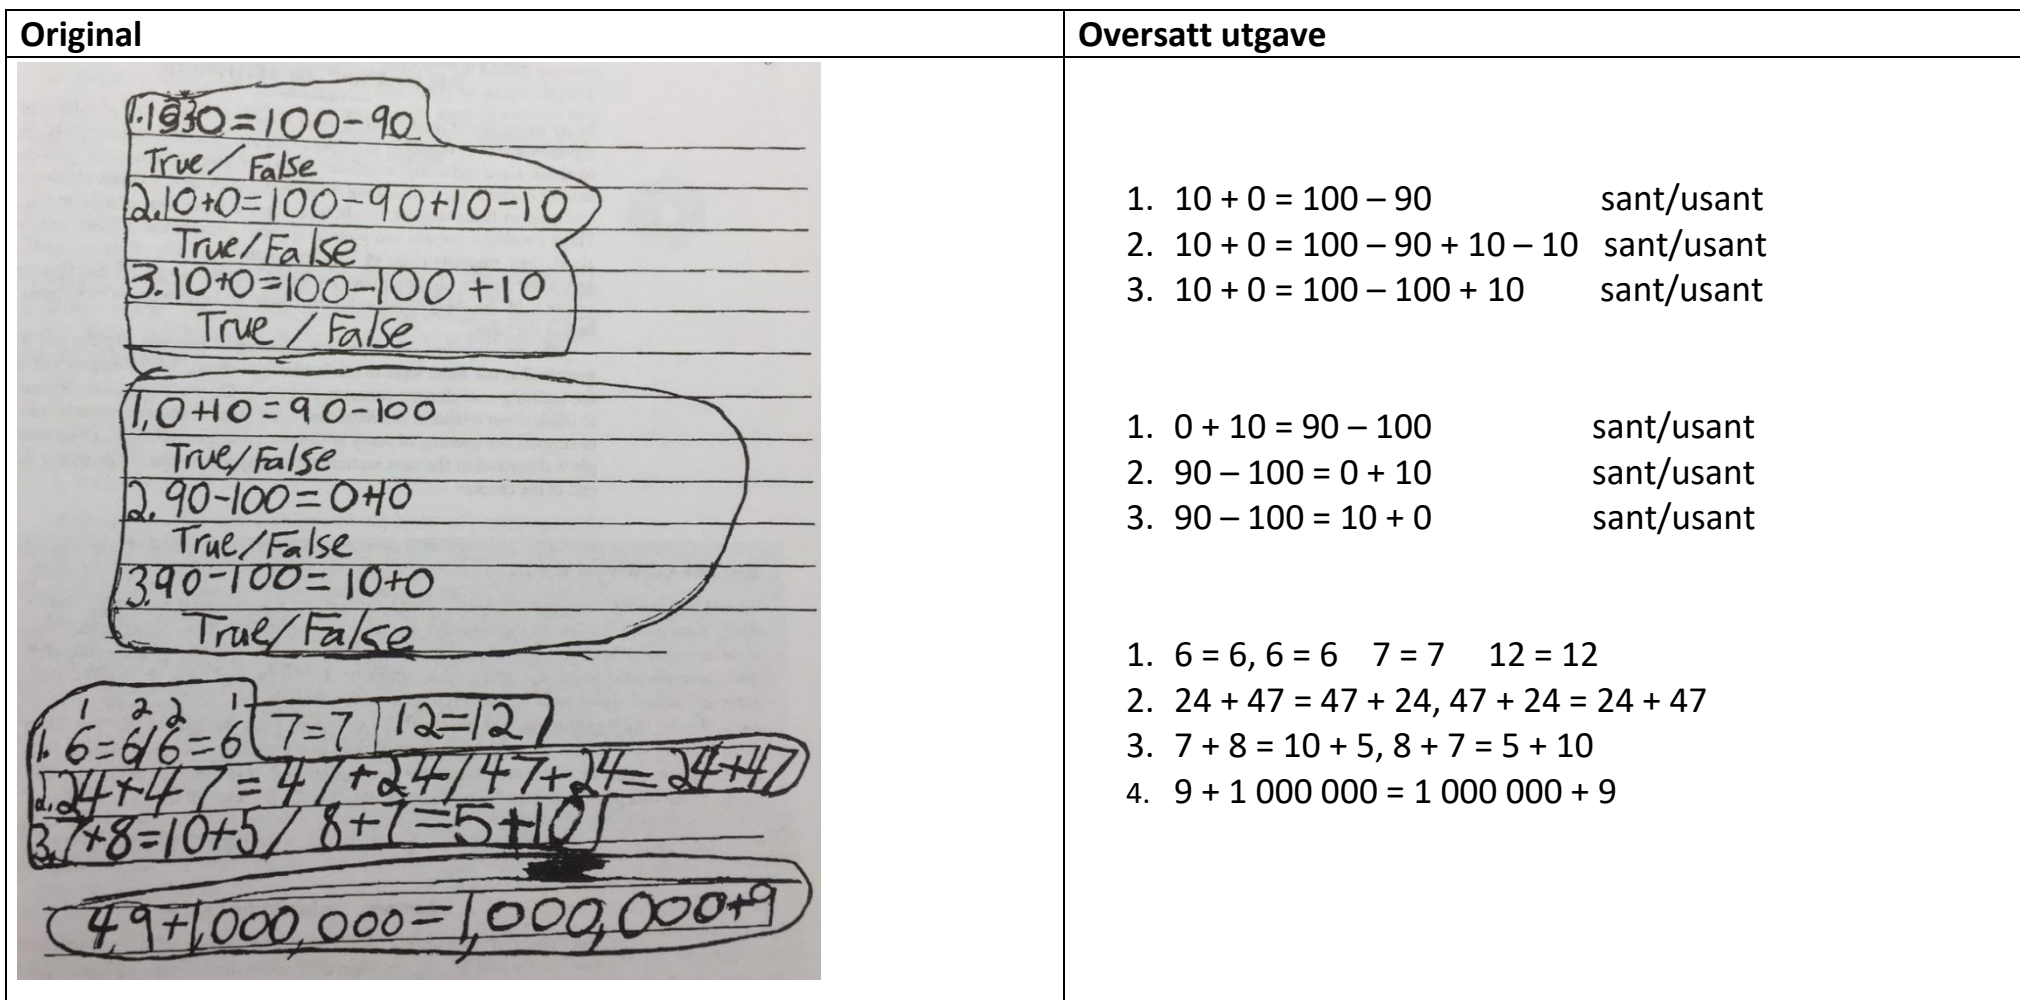 Original
1. 10+0=100-90
True/False
2. 10+0=100-90+10-10
True/False
3. 10+0=100-100+10
True / False
1, 0+10=90-100
True/False
2. 90-100=0+10
True/False
3. 90-100=10+0
True/False
1 2 2 1
1. 6=6/6=6 7=7 12=12
2. 24+47=47+24/47+24=24+47
3. 7+8=10+5/ 8+7=5+10
4, 9+1,000,000=1,000,000+9
Oversatt utgave
1. 10 + 0 = 100 – 90 sant/usant
2. 10 + 0 = 100 – 90 + 10 – 10 sant/usant
3. 10 + 0 = 100 – 100 + 10 sant/usant
1. 0 + 10 = 90 – 100 sant/usant
2. 90 – 100 = 0 + 10 sant/usant
3. 90 – 100 = 10 + 0 sant/usant
1. 6 = 6, 6 = 6 7 = 7 12 = 12
2. 24 + 47 = 47 + 24, 47 + 24 = 24 + 47
3. 7 + 8 = 10 + 5, 8 + 7 = 5 + 10
4. 9 + 1 000 000 = 1 000 000 + 9